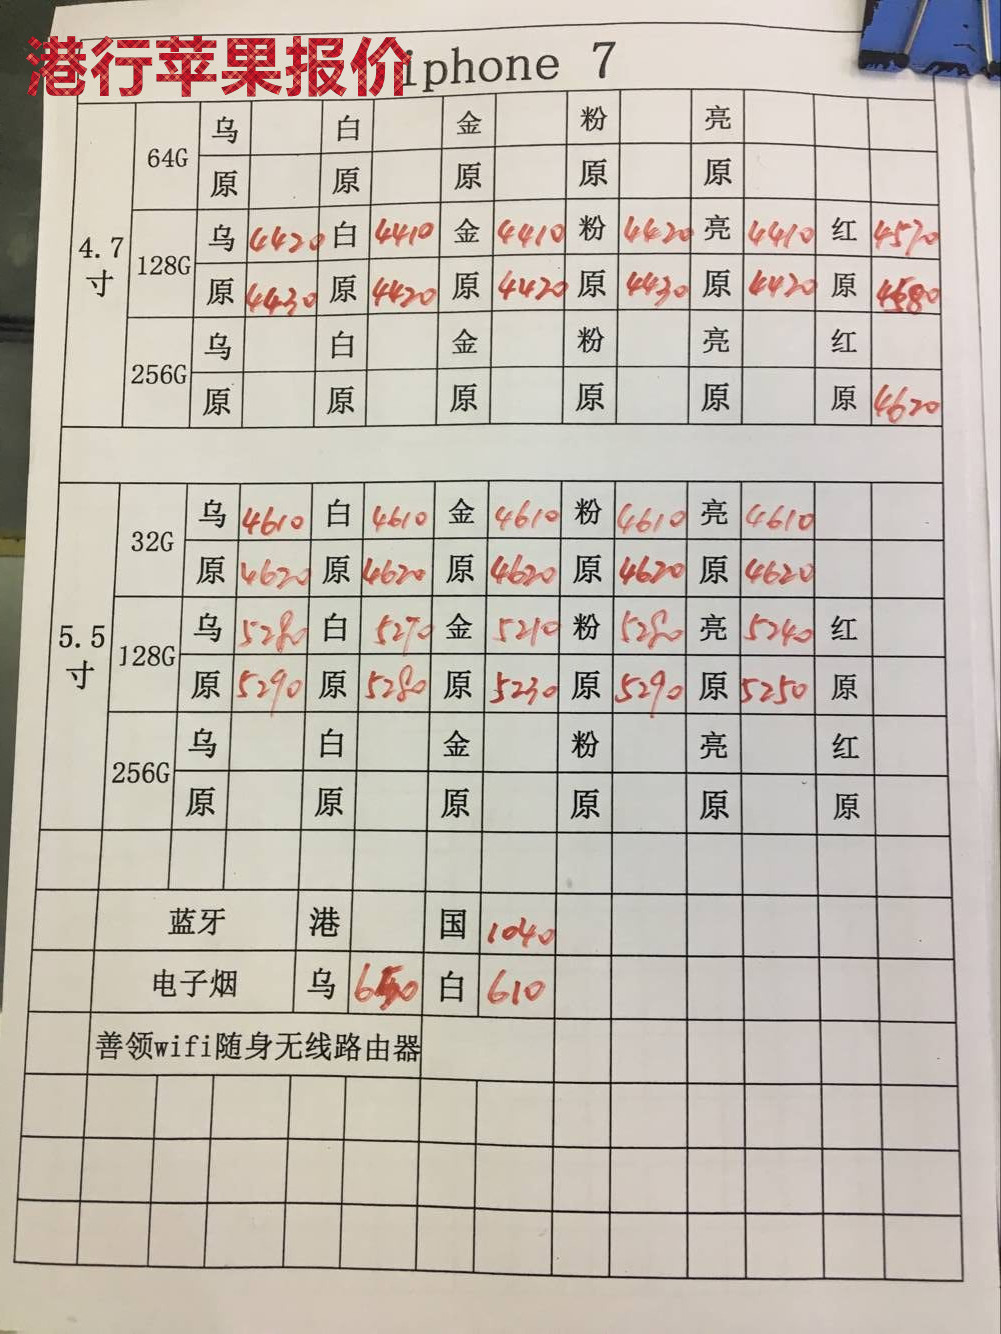 港行苹果报价
iphone 7
4.7寸
64G 乌 白 金 粉 亮
原 原 原 原 原
128G 乌 4420 白 4410 金 4410 粉 4420 亮 4410 红 4570
原 4430 原 4420 原 4420 原 4430 原 4420 原 4580
256G 乌 白 金 粉 亮 红
原 原 原 原 原 原 4620
5.5寸
32G 乌 4610 白 4610 金 4610 粉 4610 亮 4610
原 4620 原 4620 原 4620 原 4620 原 4620
128G 乌 5280 白 5270 金 5210 粉 5280 亮 5240 红
原 5290 原 5280 原 5230 原 5290 原 5250 原
256G 乌 白 金 粉 亮 红
原 原 原 原 原 原
蓝牙 港 国 1040
电子烟 乌 白 610
善领wifi随身无线路由器